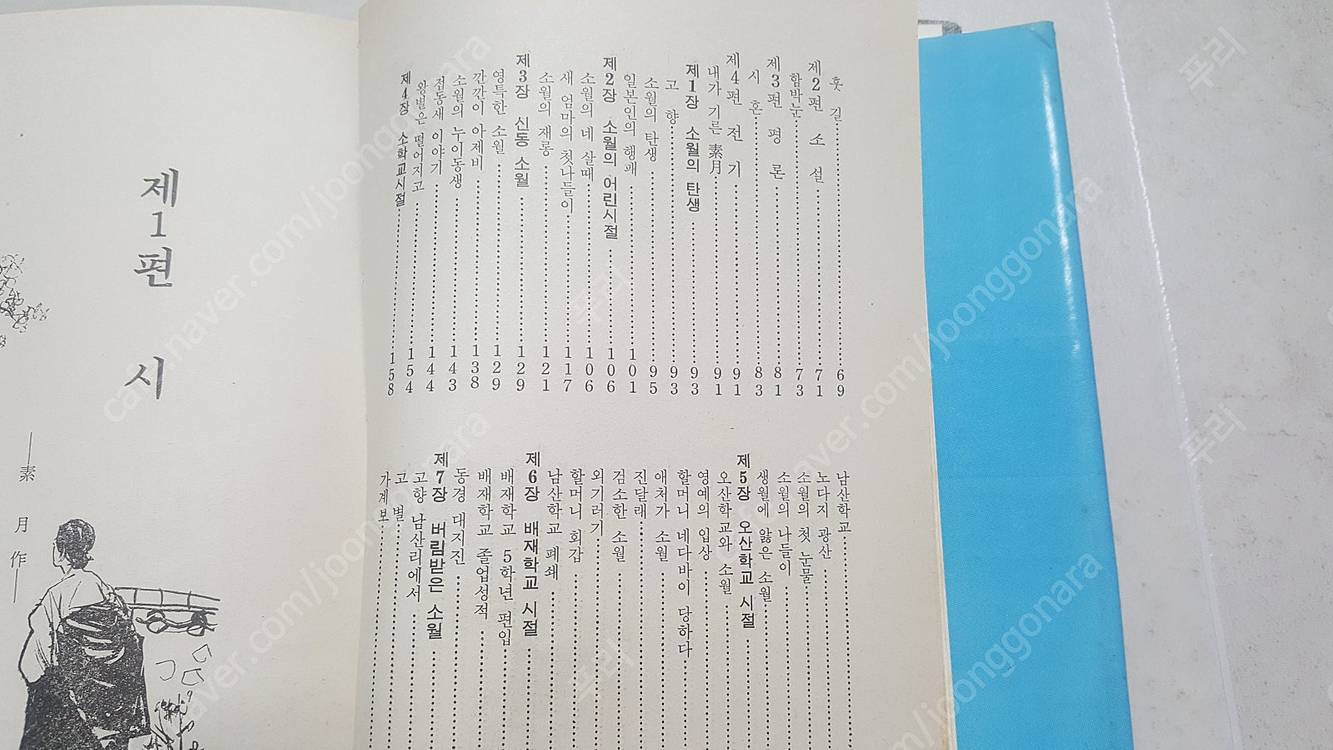 훗 길 69
제2편 소 설 71
함박눈 73
제3편 평 론 81
시 혼 83
제4편 전 기 91
내가 기른 素月 91
제1장 소월의 탄생 93
고 향 93
소월의 탄생 95
일본인의 행패 101
제2장 소월의 어린시절 106
소월의 네 살때 106
새 엄마의 첫나들이 117
소월의 재롱 121
제3장 신동 소월 129
영특한 소월 129
깐깐이 아제비 138
소월의 누이동생 143
접동새 이야기 144
왕별은 떨어지고 154
제4장 소학교시절 158
남산학교
노다지 광산
소월의 첫 눈물
소월의 나들이
생월에 앓은 소월
제5장 오산학교 시절
오산학교와 소월
영예의 입상
할머니 네다바이 당하다
애처가 소월
진달래
검소한 소월
외기러기
할머니 회갑
남산학교 폐쇄
제6장 배재학교 시절
배재학교 5학년 편입
배재학교 졸업성적
동경 대지진
제7장 버림받은 소월
고향 남산리에서
고 별
가계보
제1편 시
―素 月 作―
cafe.naver.com/joonggonara
푸리